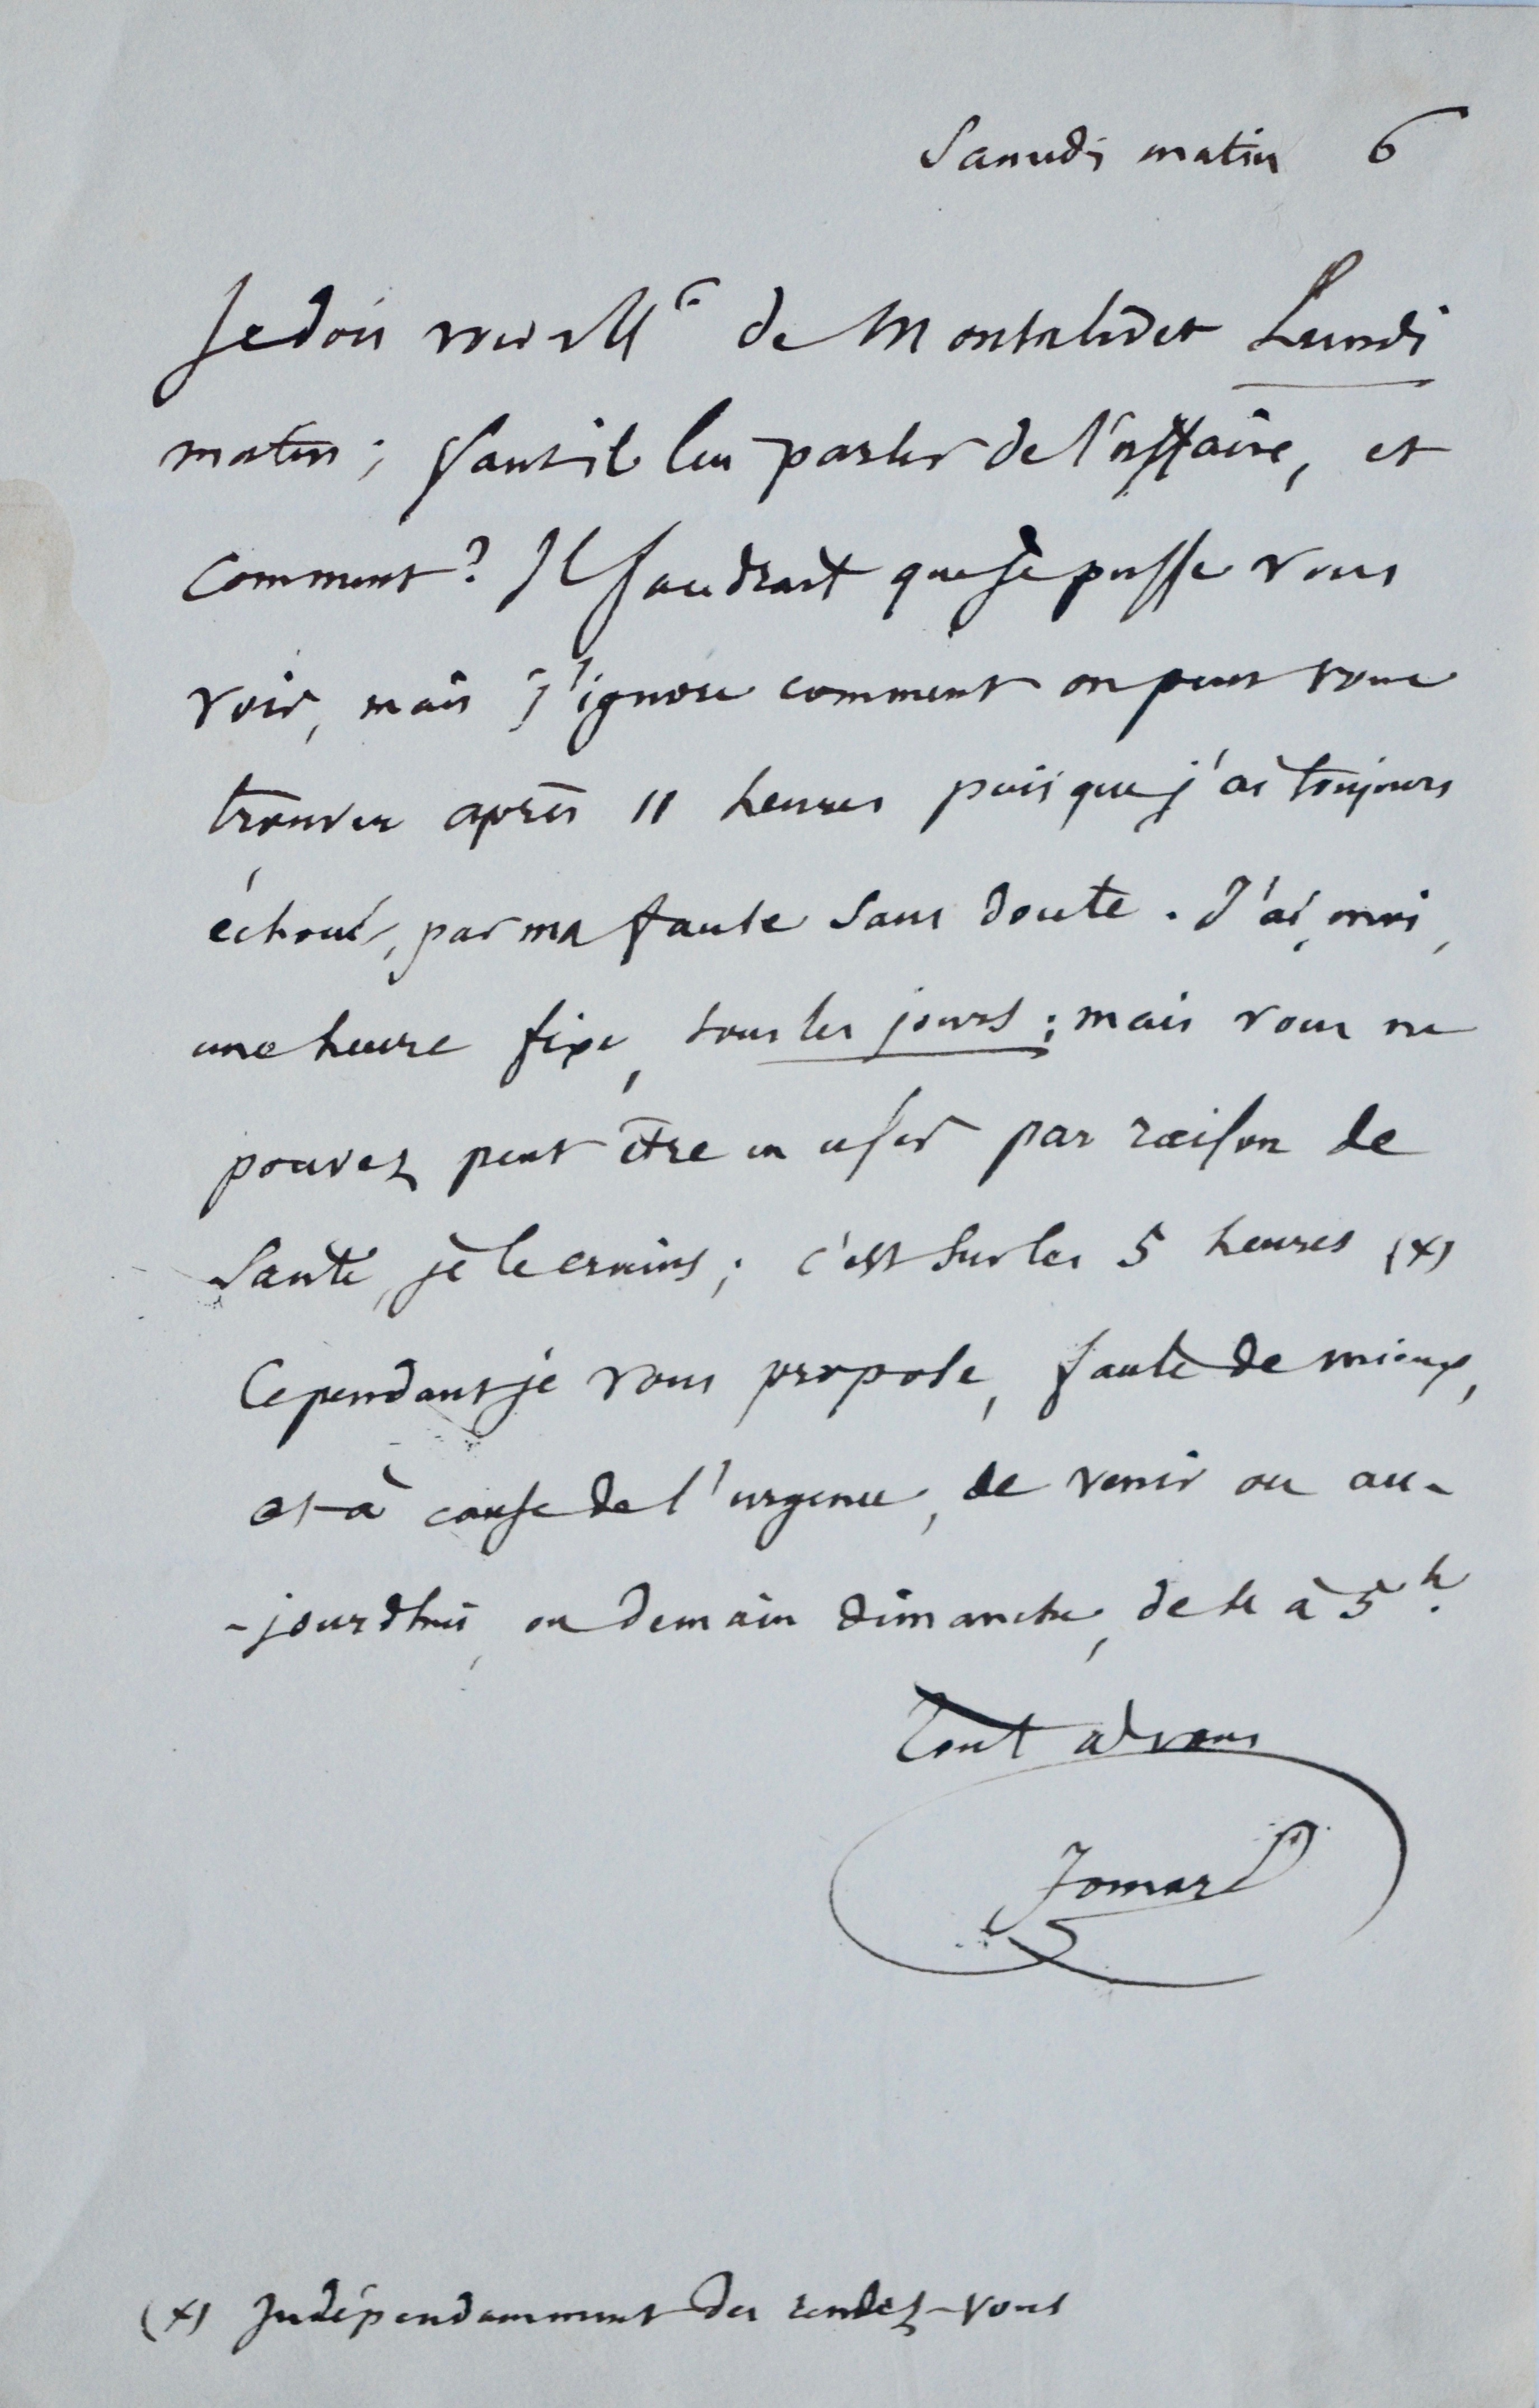 Samedi matin 6
Je dois voir Mr de Montalivet Lundi
matin ; faut il lui parler de l'affaire, et
comment ? Il faudrait que je pusse vous
voir, mais j'ignore comment on peut vous
trouver après 11 heures puisque j'ai toujours
échoué, par ma faute sans doute. J'ai, moi,
une heure fixe, tous les jours ; mais vous ne
pouvez peut être en user par raison de
santé, je le crains ; c'est sur les 5 heures (x)
Cependant je vous propose, faute de mieux,
et à cause de l'urgence, de venir ou au-
-jourdhui, ou demain dimanche, de 4 à 5 h.
Tout à vous
Jomard
(x) Indépendamment des rendez-vous